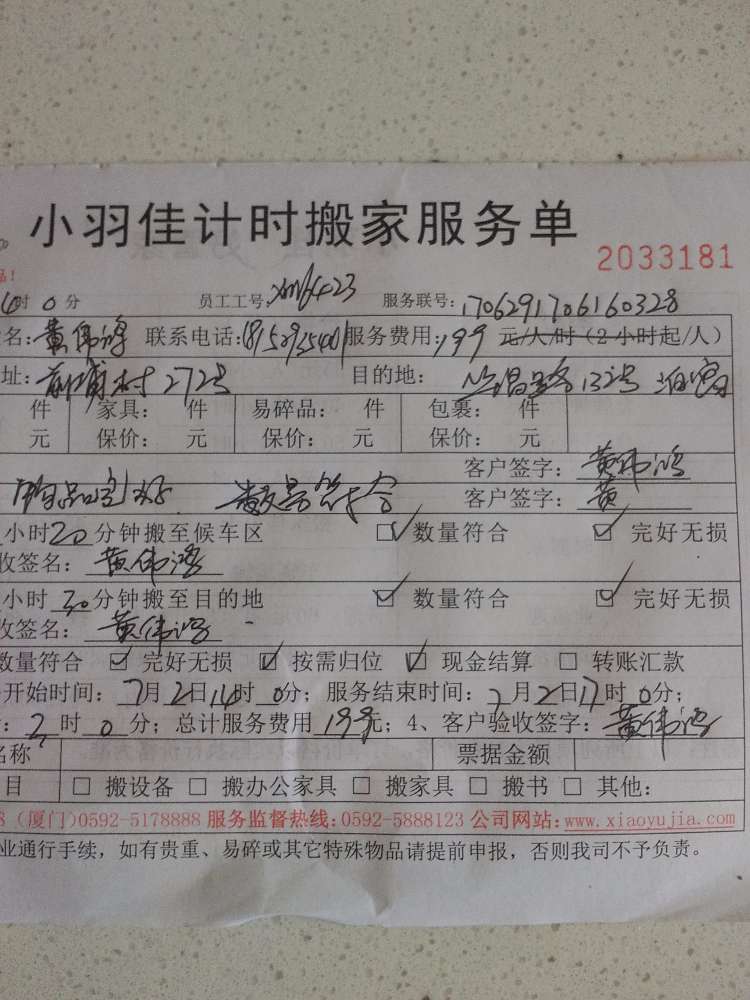 小羽佳计时搬家服务单
2033181
品!
时 0 分 员工工号: xm6423 服务联号: 1706291706160328
名: 黄伟鸿 联系电话: 服务费用: 199 元/人/时（2小时起/人）
址: 前埔村272号 目的地: 132号
件 家具: 件 易碎品: 件 包裹: 件
元 保价: 元 保价: 元 保价: 元
客户签字: 黄伟鸿
物品完好 数量符合 客户签字: 黄
小时20分钟搬至候车区 ☑ 数量符合 ☑ 完好无损
收签名: 黄伟鸿
小时30分钟搬至目的地 ☑ 数量符合 ☑ 完好无损
收签名: 黄伟鸿
数量符合 ☑ 完好无损 ☑ 按需归位 ☑ 现金结算 □ 转账汇款
开始时间: 7月2日14时0分; 服务结束时间: 7月2日17时0分;
: 3时0分; 总计服务费用199元; 4、客户验收签字: 黄伟鸿
名称 票据金额
目 □ 搬设备 □ 搬办公家具 □ 搬家具 □ 搬书 □ 其他:
8（厦门）0592-5178888 服务监督热线:0592-5888123 公司网站:www.xiaoyujia.com
业通行手续，如有贵重、易碎或其它特殊物品请提前申报，否则我司不予负责。